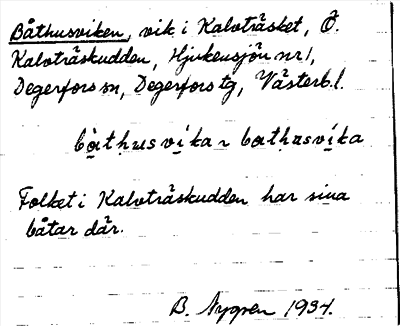 Båthusviken, vik i Kalvträsket, Ö.
Kalvträskudden, Hjukensjön nr 1,
Degerfors sn, Degerfors tg, Västerb. l.
bàt̩husvi̩ka ~ bat̩husvi̩ka
Folket i Kalvträskudden har sina
båtar där.
B. Nygren 1934.